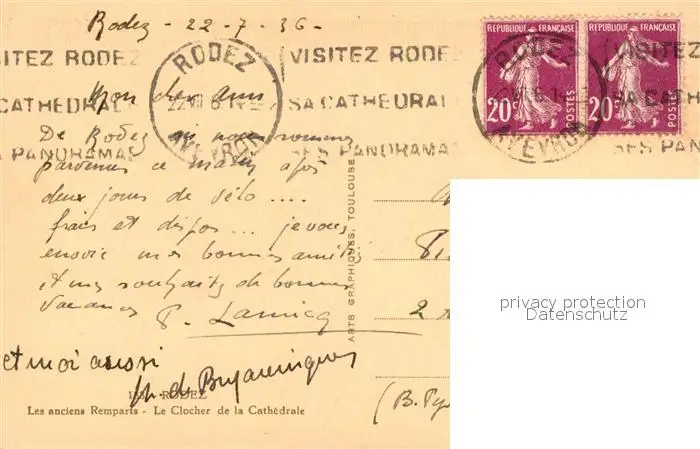 Rodez - 22-7-36 -
VISITEZ RODEZ
SA CATHEDRALE
SES PANORAMAS
RODEZ
AVEYRON
REPUBLIQUE FRANÇAISE
20c POSTES
REPUBLIQUE FRANÇAISE
20c POSTES
Mon cher ami
De Rodez où nous sommes
parvenus ce matin après
deux jours de vélo ....
frais et dispos ... je vous
envoie mes bonnes amitiés
et mes souhaits de bonnes
vacances
P.
et moi aussi
M. de
RODEZ
Les anciens Remparts - Le Clocher de la Cathédrale
ARTS GRAPHIQUES, TOULOUSE
2
(B. Py
privacy protection
Datenschutz